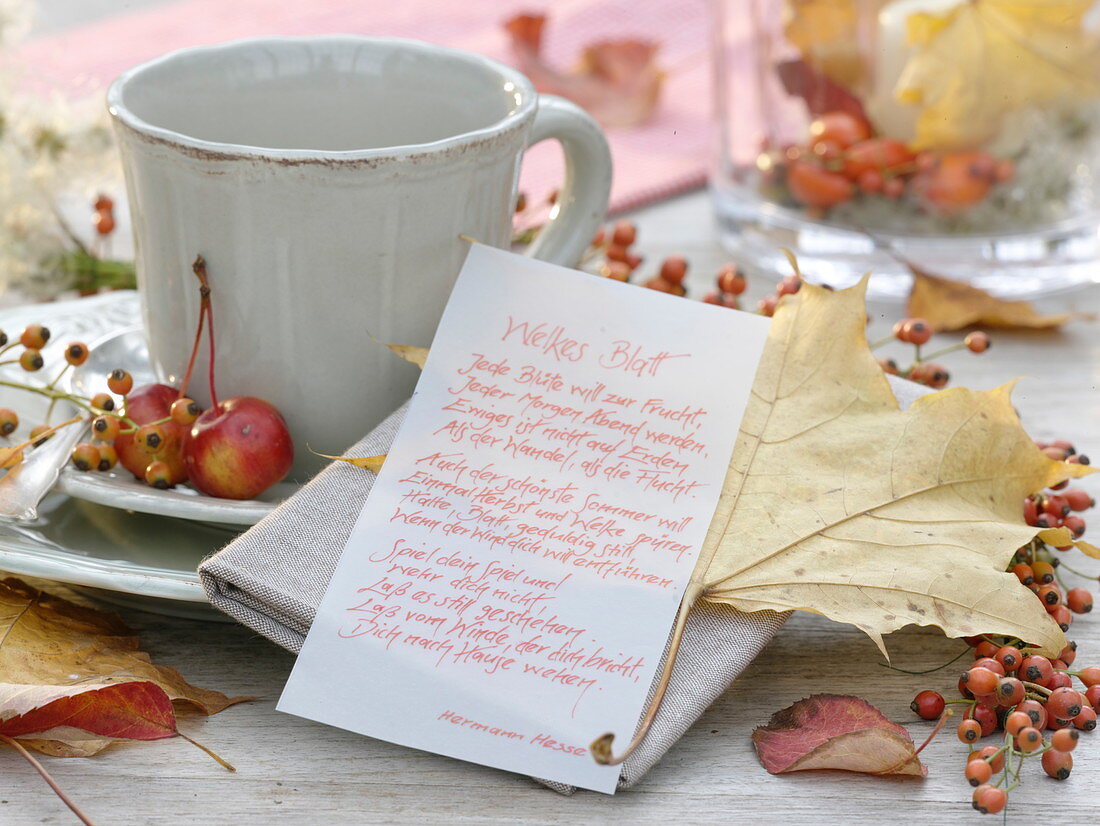 Welkes Blatt
Jede Blüte will zur Frucht,
Jeder Morgen Abend werden.
Ewiges ist nicht auf Erden
Als der Wandel, als die Flucht.
Auch der schönste Sommer will
Einmal Herbst und Welke spüren.
Halte, Blatt, geduldig still
Wenn der Wind dich will entführen.
Spiel dein Spiel und
wehr dich nicht,
Laß es still geschehen.
Laß vom Winde, der dich bricht,
Dich nach Hause wehen.
Hermann Hesse